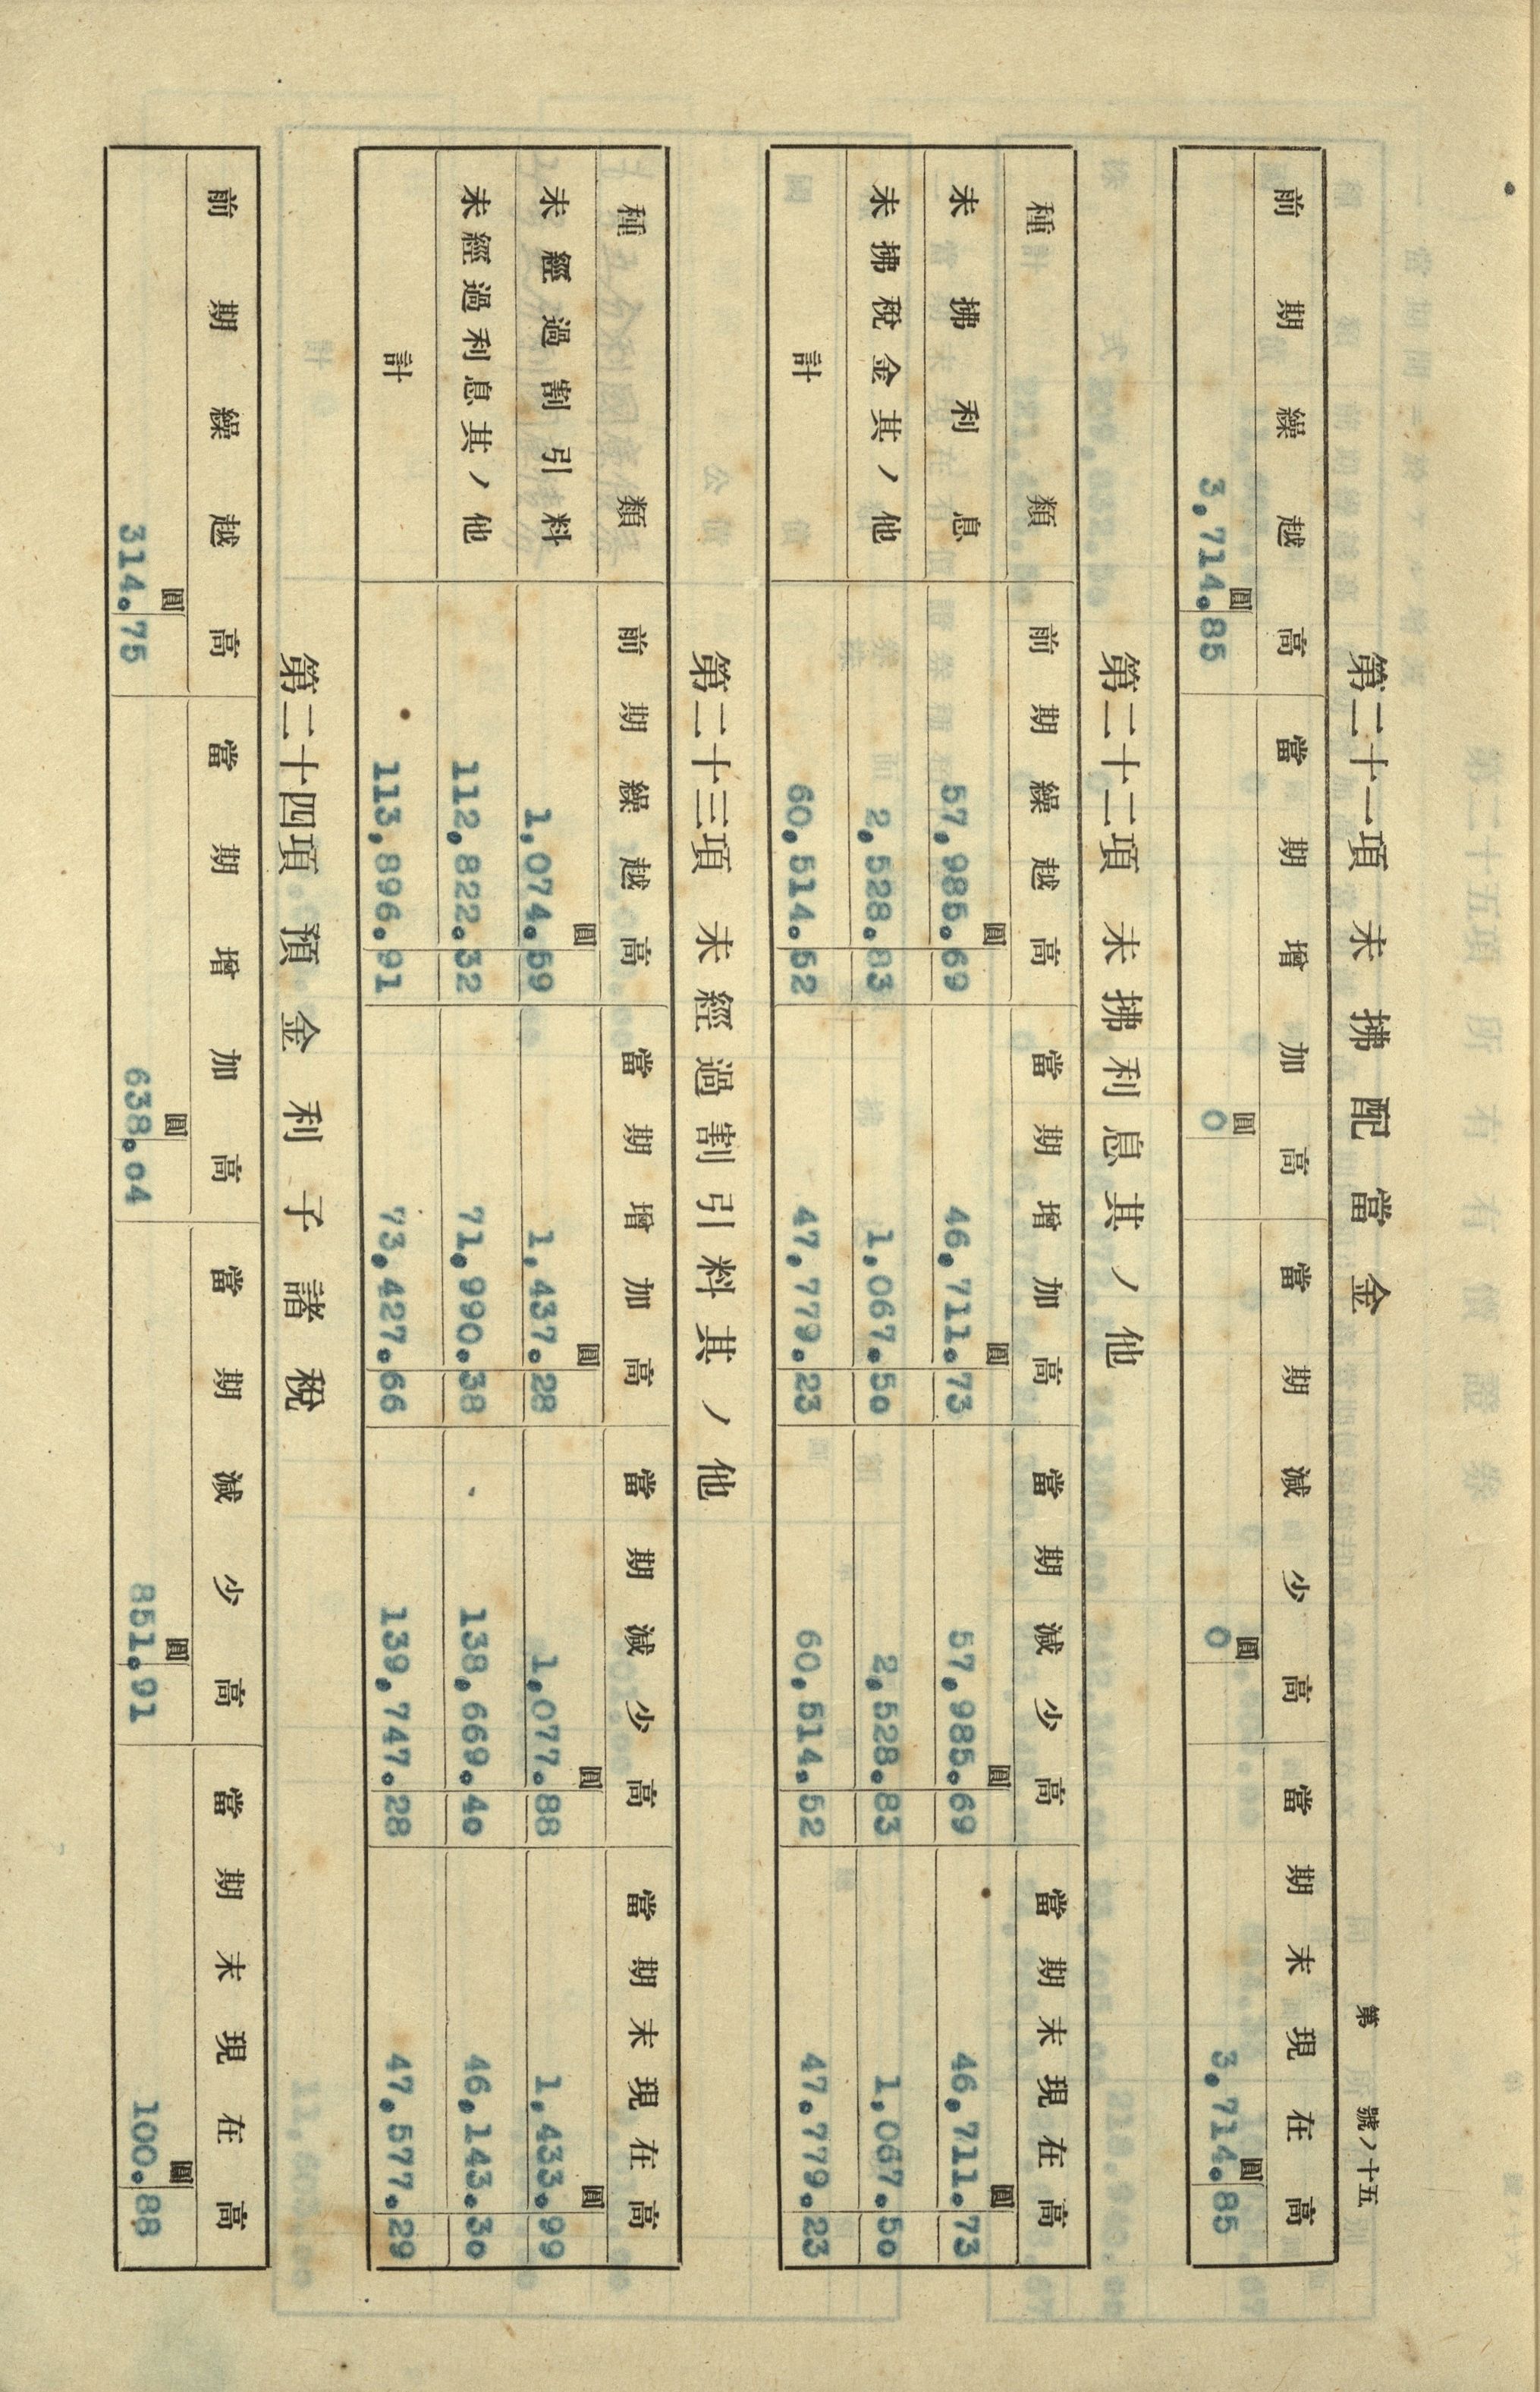 第 號ノ十五
第二十一項 未拂配當金
前期繰越高 當期增加高 當期減少高 當期末現在高
圓 圓 圓 圓
3,714.85 0 0 3,714.85
第二十二項 未拂利息其ノ他
種類 前期繰越高 當期增加高 當期減少高 當期末現在高
圓 圓 圓 圓
未拂利息 57,985.69 46,711.73 57,985.69 46,711.73
未拂稅金其ノ他 2,528.83 1,067.50 2,528.83 1,067.50
計 60,514.52 47,779.23 60,514.52 47,779.23
第二十三項 未經過割引料其ノ他
種類 前期繰越高 當期增加高 當期減少高 當期末現在高
圓 圓 圓 圓
未經過割引料 1,074.59 1,437.28 1,077.88 1,433.99
未經過利息其ノ他 112,822.32 71,990.38 138,669.40 46,143.30
計 113,896.91 73,427.66 139,747.28 47,577.29
第二十四項 預金利子諸稅
前期繰越高 當期增加高 當期減少高 當期末現在高
圓 圓 圓 圓
314.75 638.04 851.91 100.88